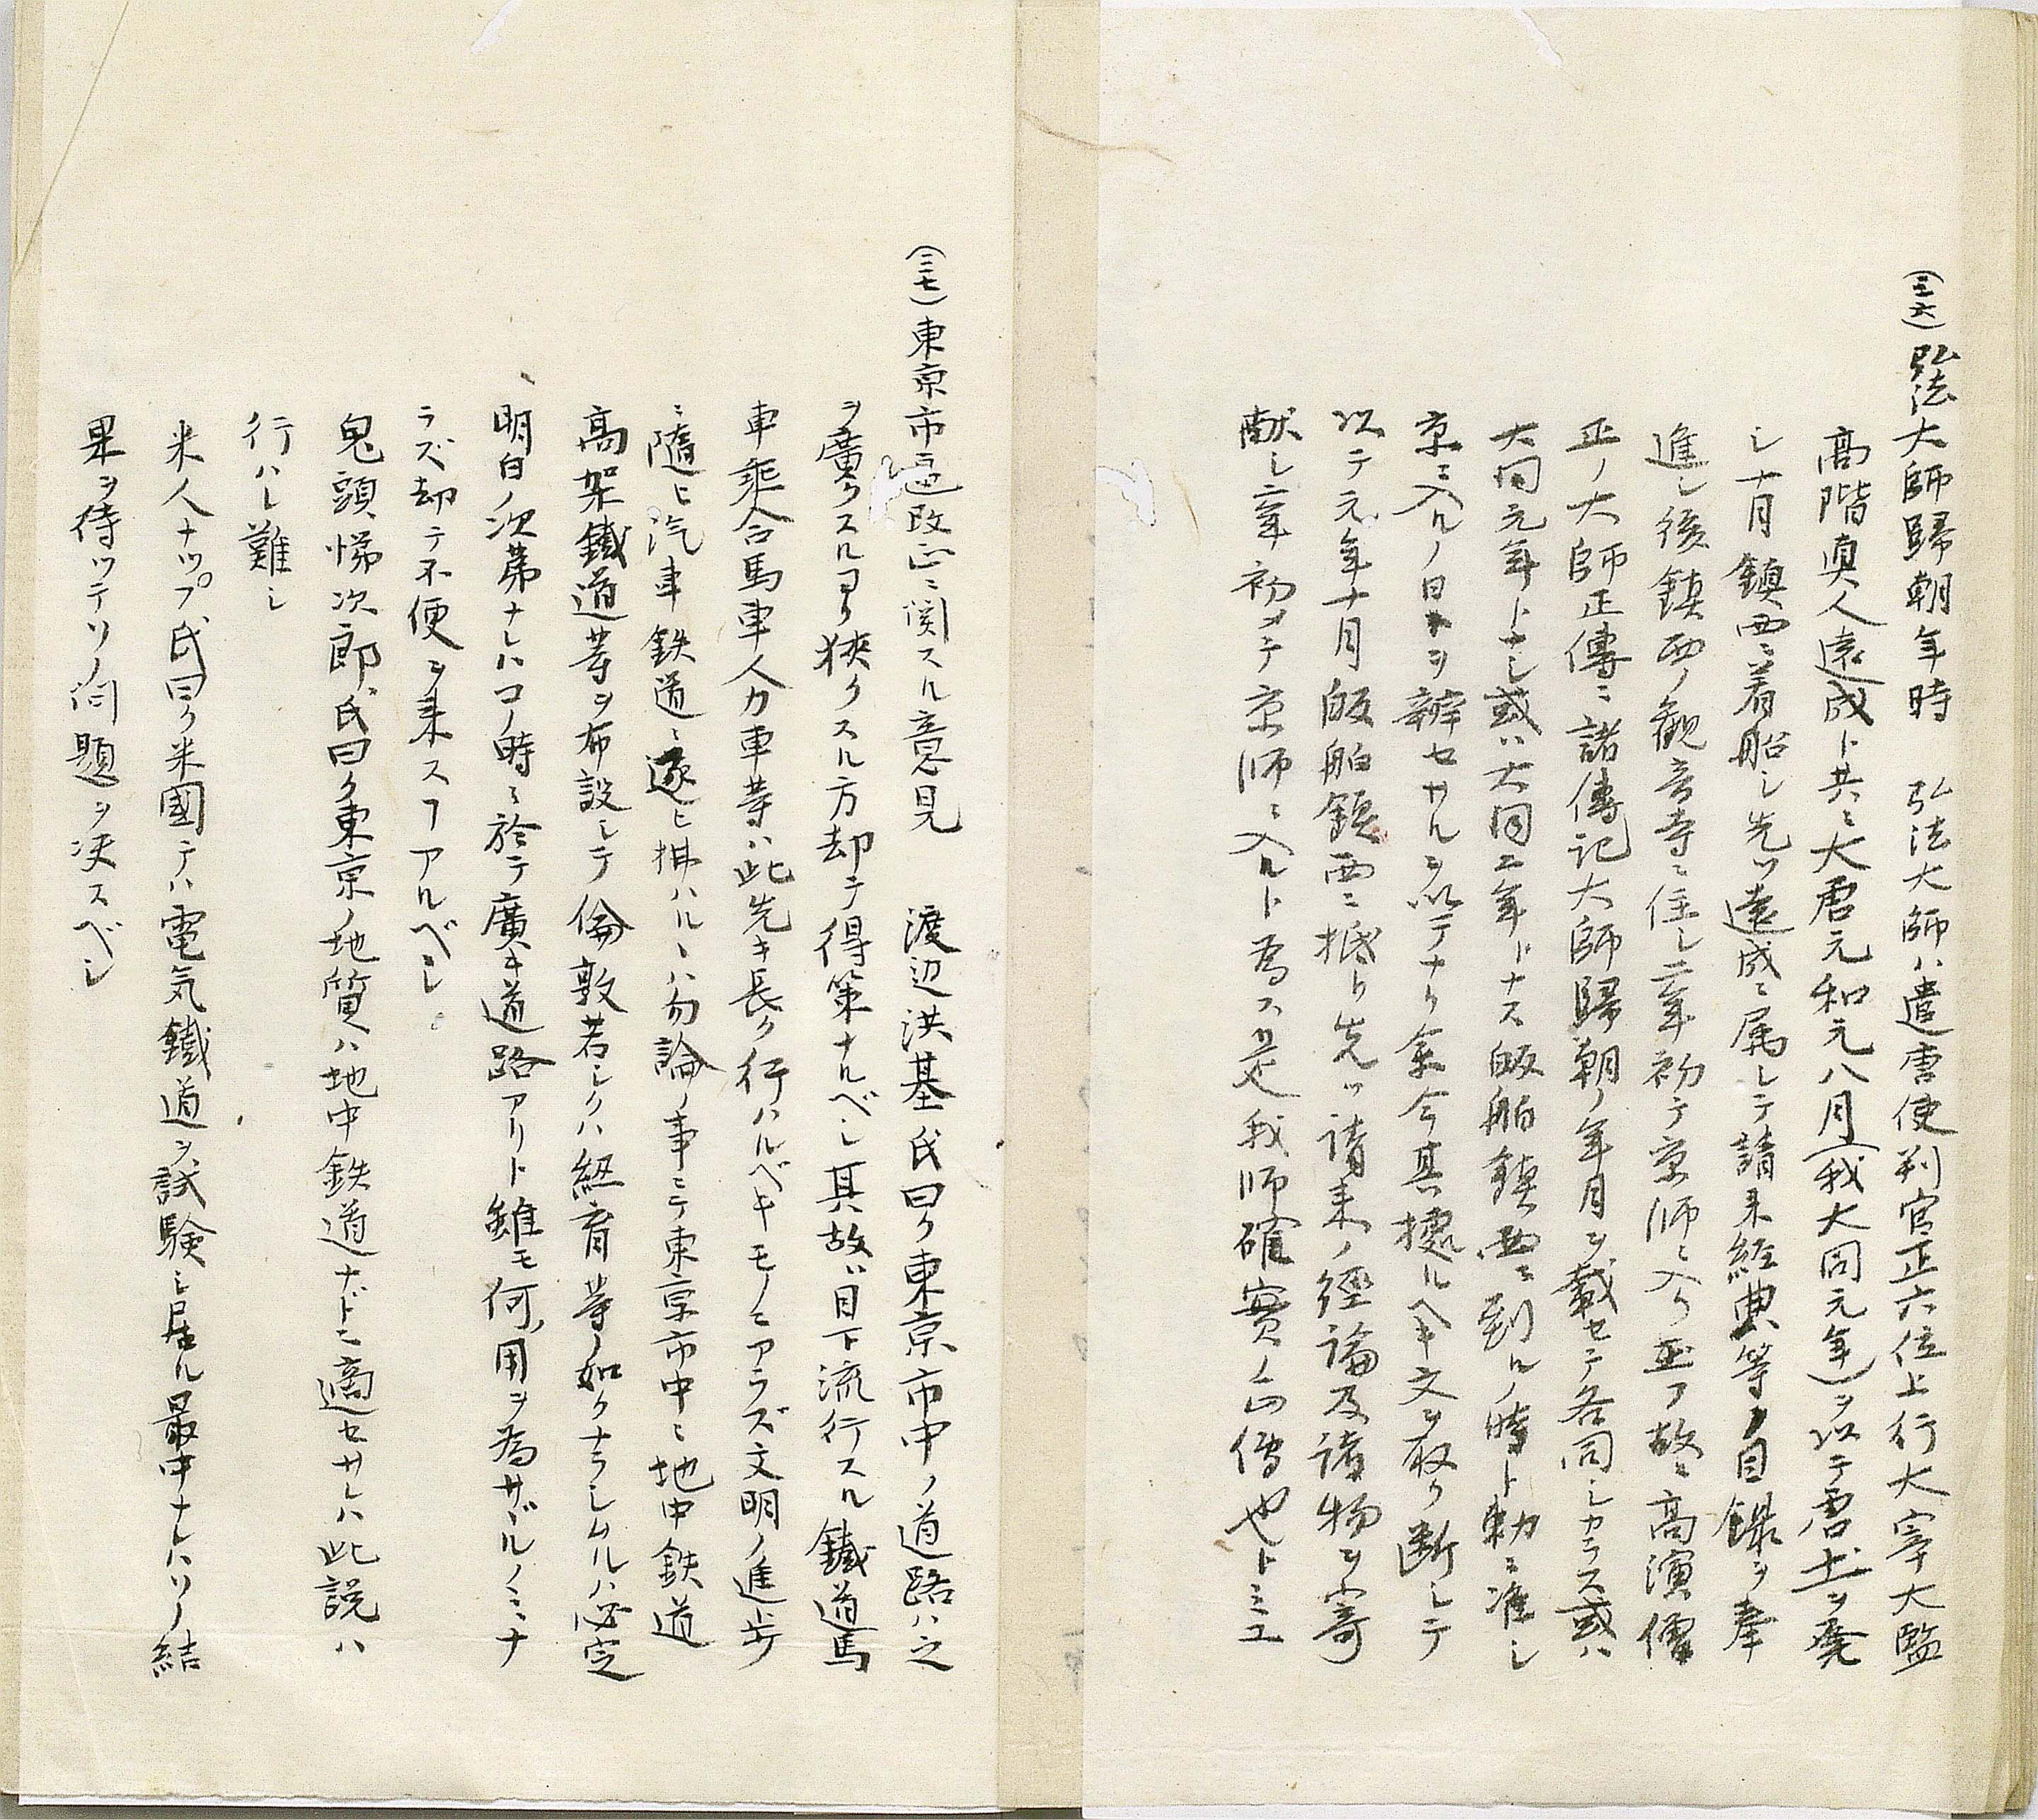 (三六)弘法大師歸朝年時　弘法大師ハ遣唐使判官正六位上行大宰大監
髙階眞人遠成ト共ニ大唐元和元八月(我大同元年)ヲ以テ唐土ヲ発
シ十月鎮西ニ着船シ先ツ遠成ニ属シテ請来経典等ノ目録ヲ奉
進シ後鎮西ノ觀音寺ニ住シ二年初テ京師ニ入ク 故ニ高演僧
正ノ大師正傳ニ諸傳記大師歸朝ノ年月ヲ載セテ各同シカラス或ハ
大同元年トナシ或ハ大同二年トナス皈舶鎮西ニ到ルノ時ト勅ニ准シ
京ニ入ルノ日トヲ辨セサルヲ以テナリ余今其據ルヘキ文ヲ取リ断シテ
以テ元年十月皈舶鎮西ニ抵リ先ツ請来ノ經論及諸物ヲ寄
献シ二年初メテ京師ニ入ルト為ス 是我師確實ノ 僧也トミユ
(三七)東京市區改正ニ関スル意見　渡辺洪基氏曰ク東京市中ノ道路ハ之
ヲ廣クスルヨリ狹クスル方却テ得策ナルベシ其故ハ目下流行スル鐵道馬
車乗合馬車人力車等ハ此先キ長ク行ハルベキモノニアラズ文明ノ進歩
ニ隨ヒ汽車鉄道ニ逐ヒ拂ハルヽハ勿論ノ事ニテ東京市中ニ地中鉄道
高架鐵道等ヲ布設シテ倫敦若シクハ紐育等ノ如クナラシムルハ必定
明白ノ次第ナレハコノ時ニ於テ廣キ道路アリト雖モ何ノ用ヲ為サヾルノミナ
ラズ却テ不便ヲ来スヿアルベシ
鬼頭悌次郎氏曰ク東京ノ地質ハ地中鉄道ナドニ適セサレハ此説ハ
行ハレ難シ
米人ナップ氏曰ク米國テハ電気鐵道ヲ試験シ居ル最中ナレハソノ結
果ヲ待ツテソノ問題ヲ决スベシ